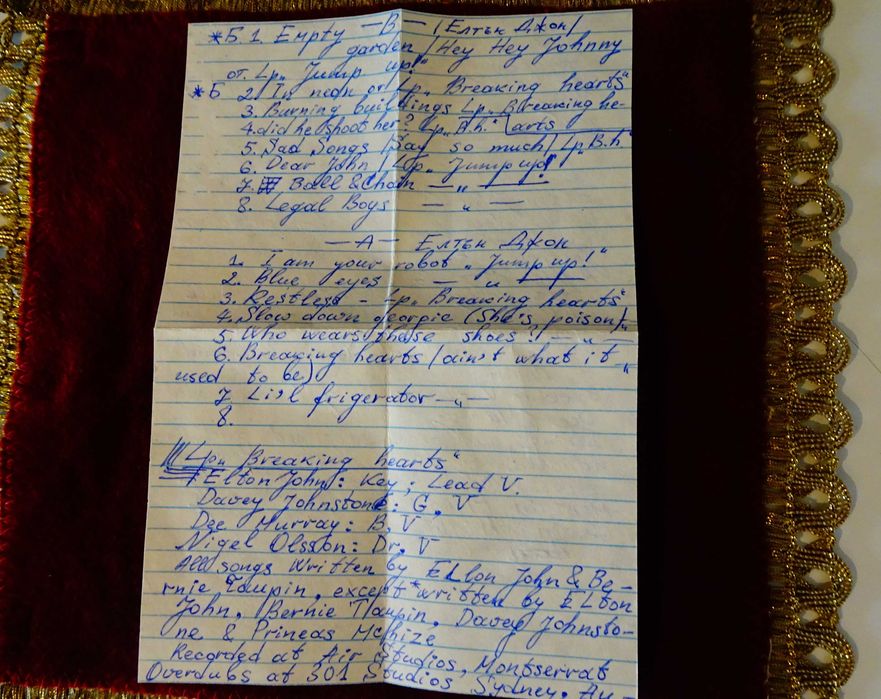 *Б. 1. Empty — В — /Елтън Джон/
garden /Hey Hey Johnny
от Lp „Jump up!"
*Б 2. In neon от Lp „Breaking hearts"
3. Burning buildings Lp „Breaking he-
4. did he shoot her? Lp „B.h." arts
5. Sad Songs /Say so much/ Lp „B.h"
6. Dear John / Lp „Jump up!"
7. Ball & Chain — „ —
8. Legal Boys — „ —
— А — Елтън Джон
1. I am your robot „Jump up!"
2. Blue eyes — „ —
3. Restless - Lp „Breaking hearts"
4. Slow down georgie (She's poison) „
5. Who wears those shoes? — „ —
6. Breaking hearts (ain't what it „
used to be)
7 Li'l frigerator — „ —
8.
Lp „Breaking hearts"
Elton John: Key; Lead V.
Davey Johnstone: G. V
Dee Murray: B. V
Nigel Olsson: Dr. V
All songs written by Elton John & Be-
rnie Taupin, except * written by Elton
John, Bernie Taupin, Davey Johnsto-
ne & Prineas Mchize
Recorded at Air Studios, Montserrat
Overdubs at 301 Studios Sydney. Au-